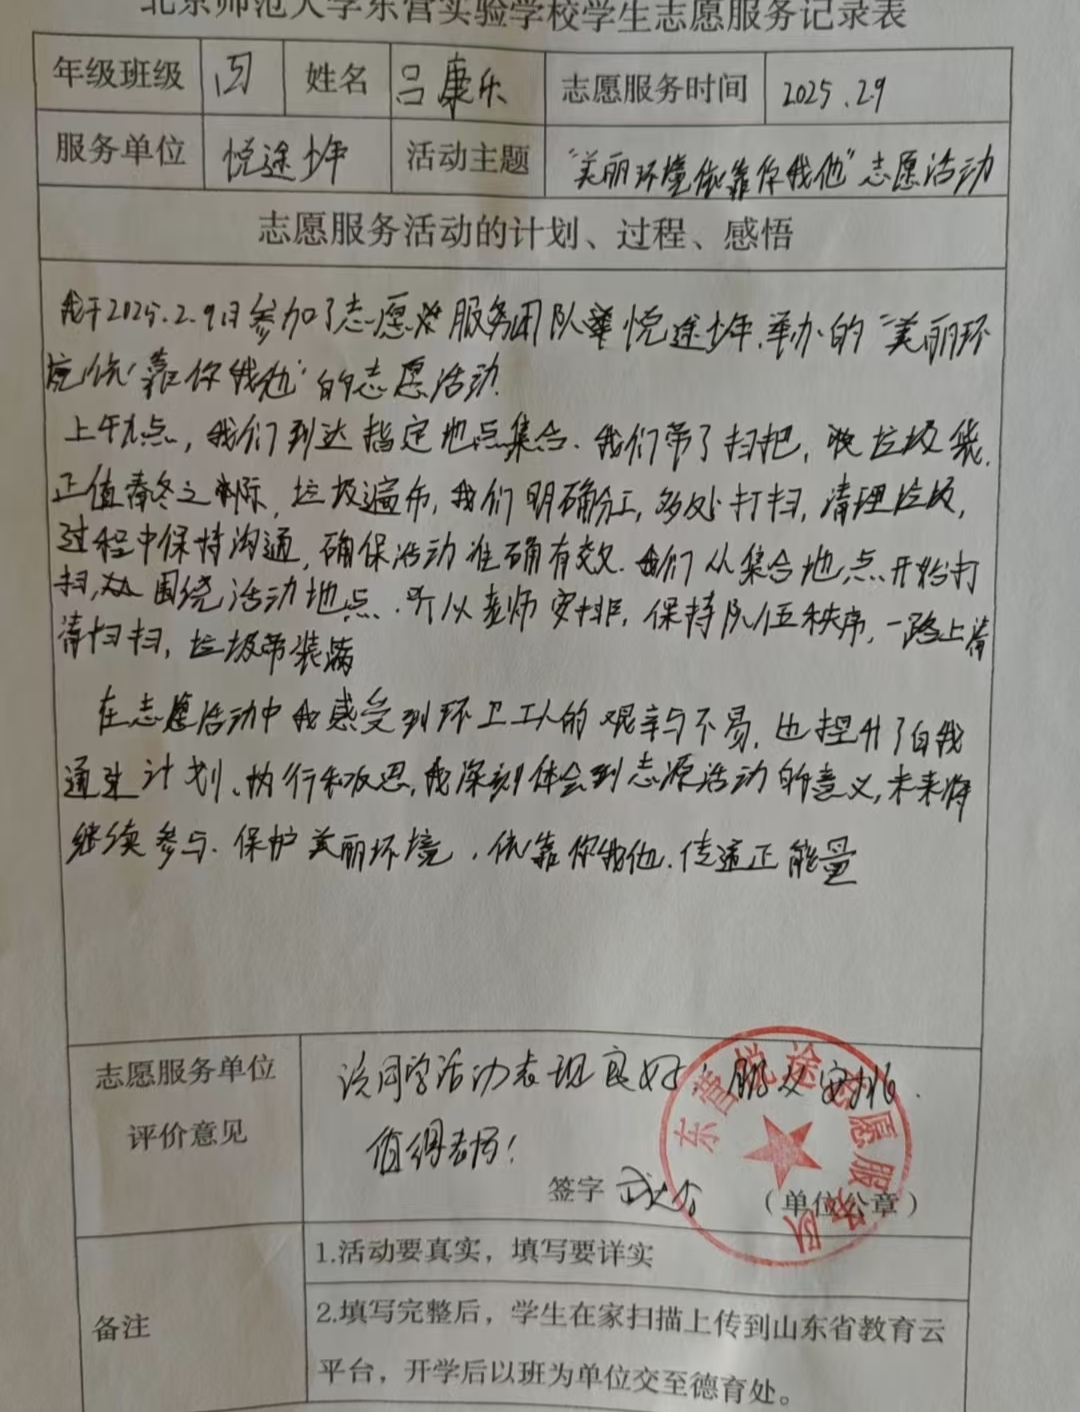 北京师范大学东营实验学校学生志愿服务记录表
年级班级 四 姓名 吕康乐 志愿服务时间 2025.2.9
服务单位 悦途少年 活动主题 “美丽环境依靠你我他”志愿活动
志愿服务活动的计划、过程、感悟
我于2025.2.9日参加了志愿 服务团队 悦途少年.举办的“美丽环
境依靠你我他”的志愿活动.
上午九点，我们到达指定地点集合.我们带了扫把， 垃圾袋.
正值春冬之 际，垃圾遍布，我们明确分工，多处打扫，清理垃圾，
过程中保持沟通，确保活动准确有效.我们从集合地点开始打
扫， 围绕活动地点.听从老师安排，保持队伍秩序，一路上清
清扫扫，垃圾带装满
在志愿活动中我感受到环卫工人的艰辛与不易，也提升了自我
通过计划、执行和反思，我深刻体会到志源活动的意义，未来将
继续参与.保护美丽环境，依靠你我他.传递正能量
志愿服务单位
评价意见
该同学活动表现良好，服从安排.
值得表扬！
签字 （单位公章）
东营悦途志愿服务队
备注
1.活动要真实，填写要详实
2.填写完整后，学生在家扫描上传到山东省教育云
平台，开学后以班为单位交至德育处。